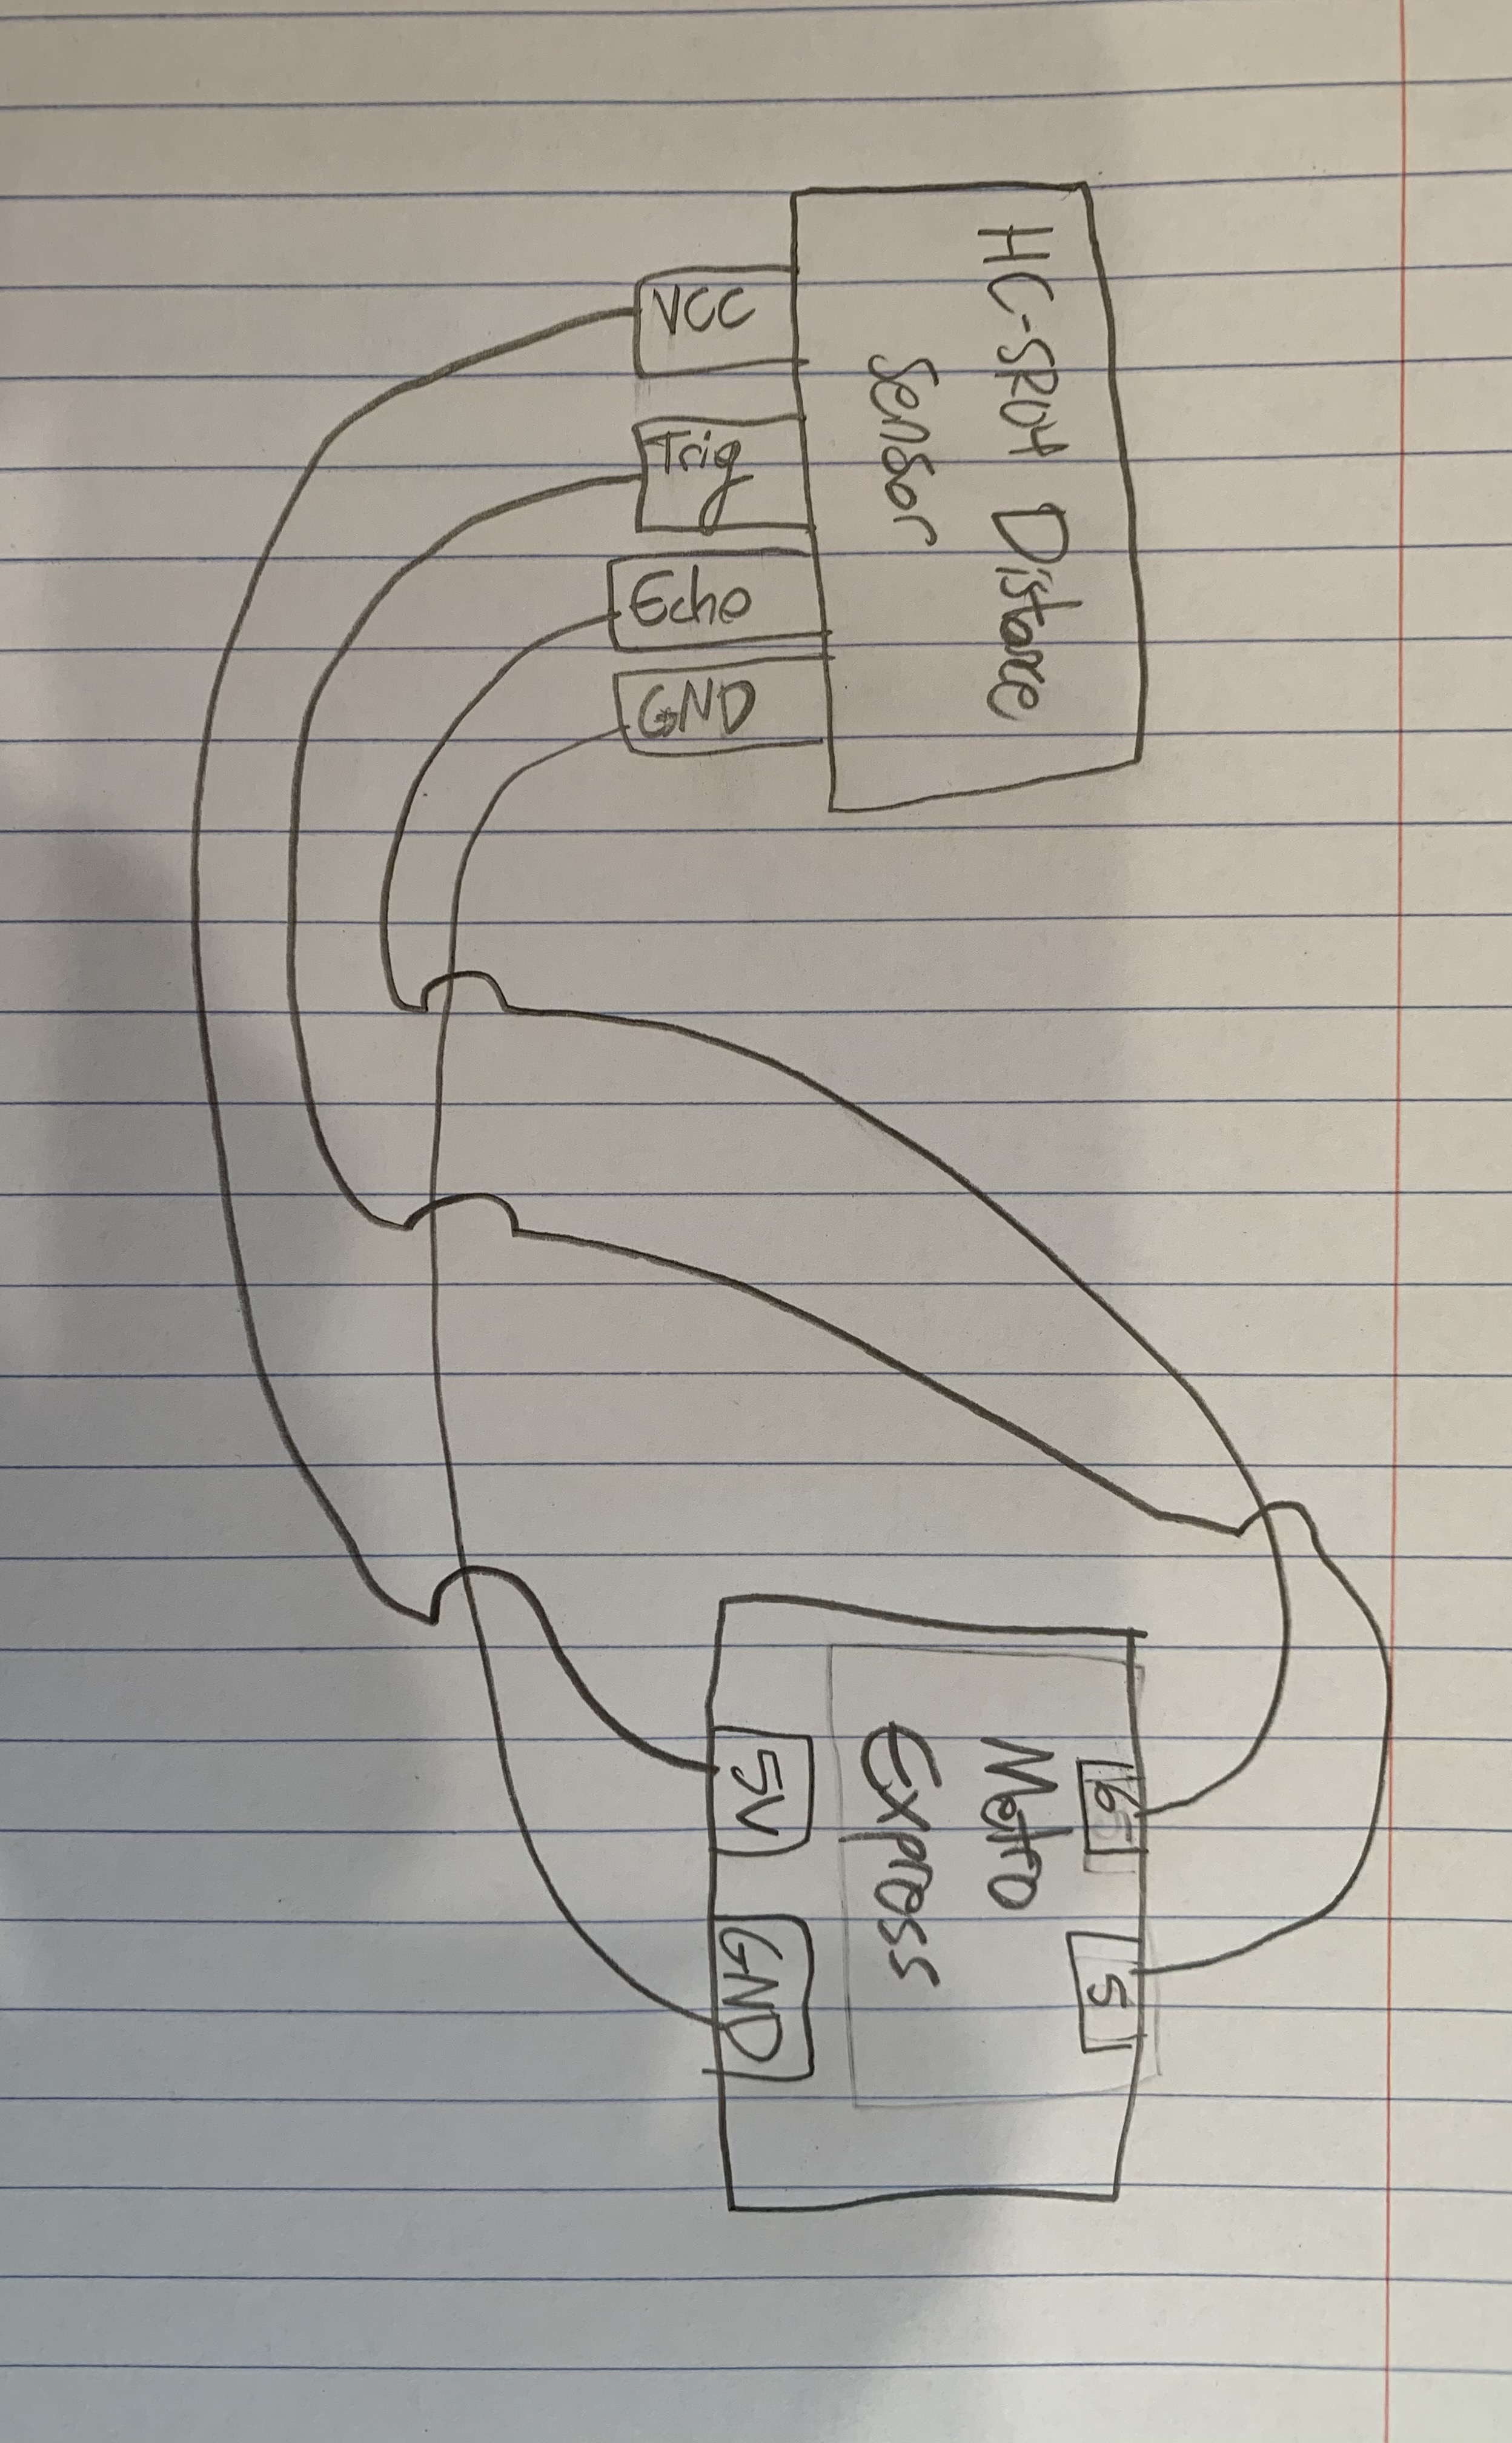 HC-SR04 Distance
Sensor
VCC
Trig
Echo
GND
6
5
Metro
Express
5V
GND